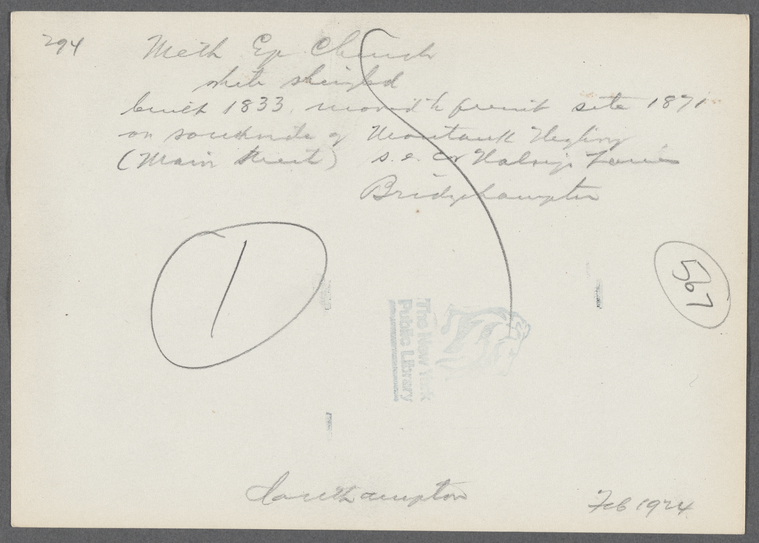 294
Meth Ep Church
white shingled
built 1833. moved to present site 1871
on south side of Montauk Highway
(Main Street) s. e. cor Halseys Lane
Bridgehampton
1
567
The New York
Public Library
Southampton
Feb 1924